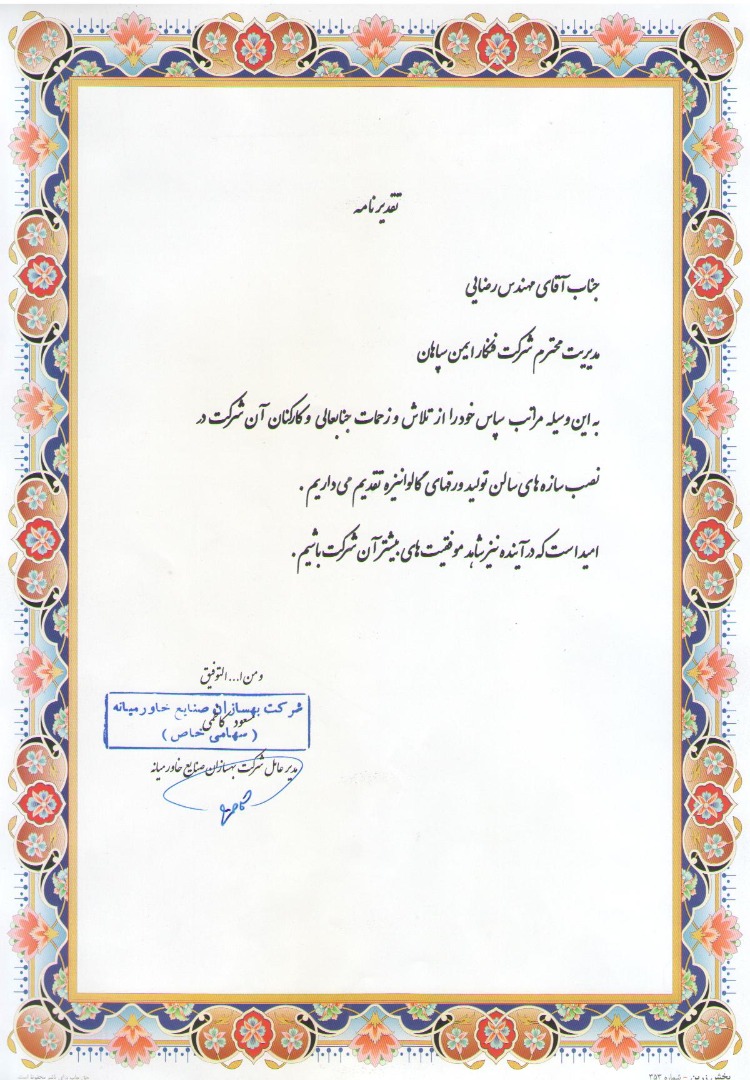 تقدیرنامه
جناب آقای مهندس رضایی
مدیریت محترم شرکت فنکار ایمن سپاهان
به این وسیله مراتب سپاس خود را از تلاش و زحمات جنابعالی و کارکنان آن شرکت در
نصب سازه های سالن تولید ورقهای گالوانیزه تقدیم می داریم .
امید است که در آینده نیز شاهد موفقیت های بیشتر آن شرکت باشیم .
و من ا... التوفیق
شرکت بهسازان صنایع خاورمیانه
مسعود کاظمی
( سهامی خاص )
مدیر عامل شرکت بهسازان صنایع خاورمیانه
پخش زرین - شماره ۳۵۳